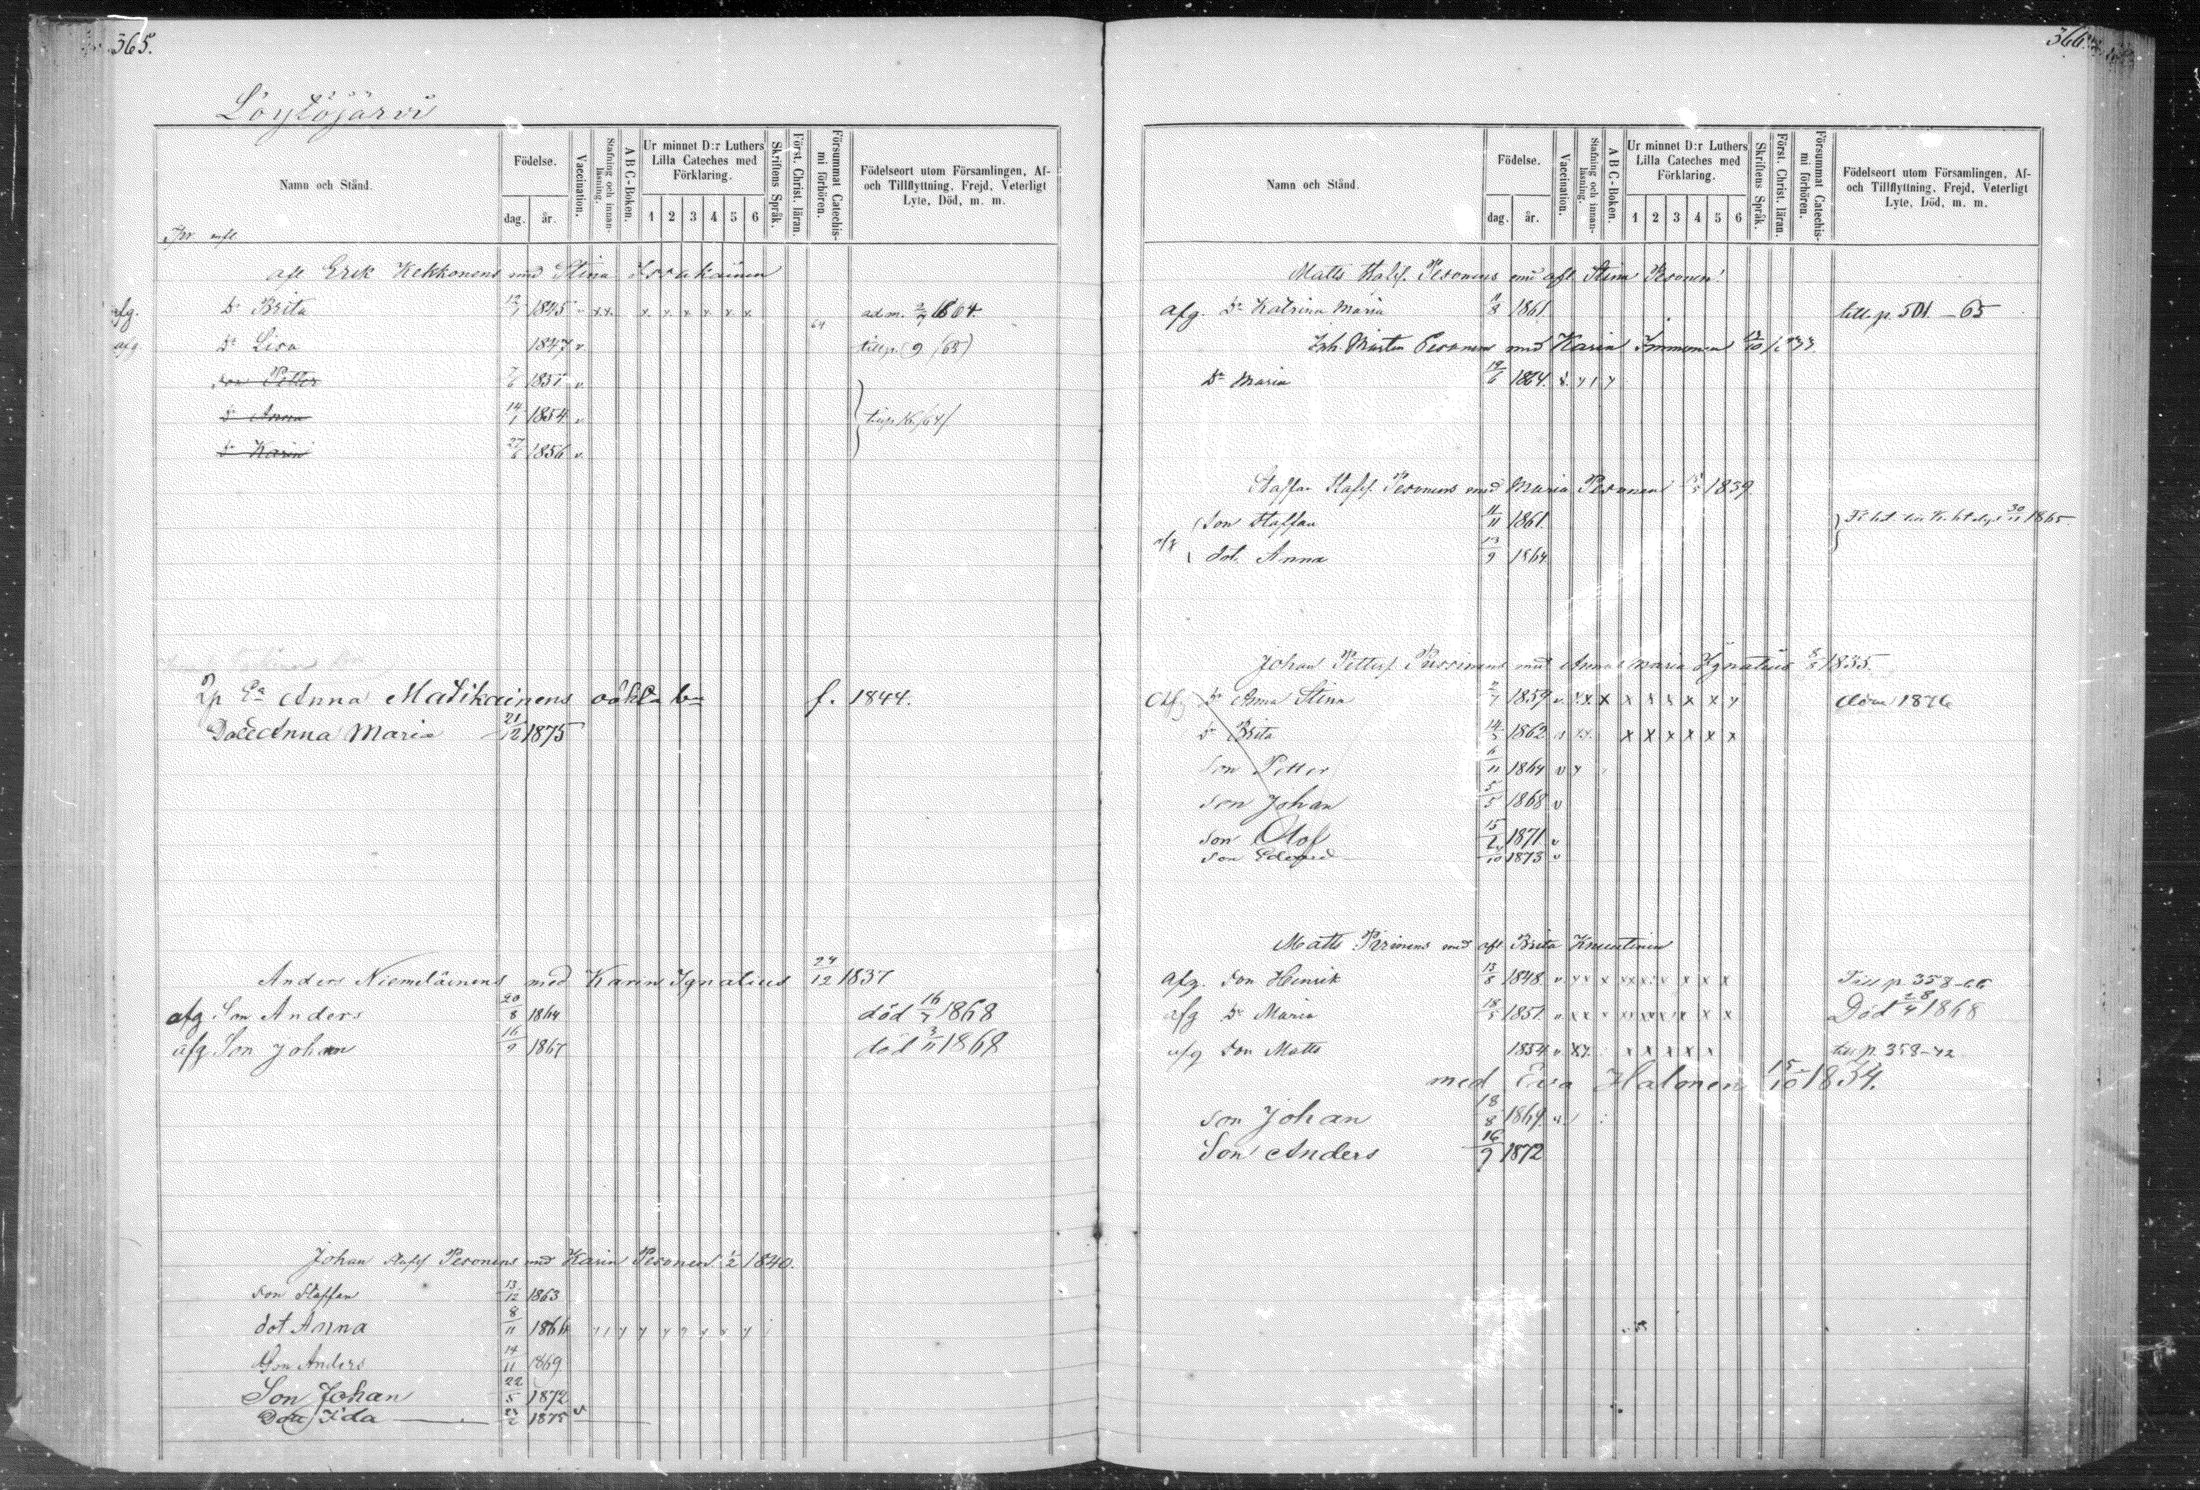 365.
Löytöjärvi
Namn och Stånd.
Födelse.
dag. år.
Vaccination.
Stafning och innanläsning.
A B C-Boken.
Ur minnet D:r Luthers Lilla Cateches med Förklaring.
1 2 3 4 5 6
Skriftens Språk.
Först. Christ. läran.
Försummat Catechismi förhören.
Födelseort utom Församlingen, Af- och Tillflyttning, Frejd, Veterligt Lyte, Död, m. m.
afl Erik Kekkonens med Stina
afg. Dr Brita 12/7 1845 v x x x x x x x x 64 adm. 1864
afg Dr Lisa 1847 v. till p. 9 /65)
son Petter 7/6 1851 v
Dr Anna 14/1 1854 v
Dr Karin 27/6 1856 v.
Anna Matikainens oäkta f. 1844.
Anna Maria 21/12 1875
Anders Niemeläinens med Karin Ignatius 24/12 1837
afg Son Anders 20/8 1864 död 16/7 1868
afg Son Johan 16/9 1867 död 3/11 1868
Johan Staffs Pesonens med Karin Pesonen 1/2 1840.
son Staffan 13/12 1863
dot Anna 8/11 1866
Son Anders 14/11 1869
Son Johan 22/5 1872
Dott Ida 23/2 1875 v
366
Namn och Stånd.
Födelse.
dag. år.
Vaccination.
Stafning och innanläsning.
A B C-Boken.
Ur minnet D:r Luthers Lilla Cateches med Förklaring.
1 2 3 4 5 6
Skriftens Språk.
Först. Christ. läran.
Försummat Catechismi förhören.
Födelseort utom Församlingen, Af- och Tillflyttning, Frejd, Veterligt Lyte, Död, m. m.
Matts Pesonens med afl Stina Pesonen
afg. Dr Katrina Maria 1861 till p. 501 - 65
Joh. Pesonens med Karin Immonen
Dr Maria 12/6 1864.
Staffan Staffs. Pesonens med Maria Pesonen 1839
son Staffan 11/11 1861. 30/11 1865.
dot. Anna 13/9 1864
Johan Petters Pursinens med Anna Maria Ignatius 1835.
afg Dr Anna Stina 1859 v. x x x x x x x x 1876
Dr Brita 14/3 1862 x x x x x x
Son Petter 6/11 1864 v
son Johan 5/5 1868 v
son Olof 15/2 1871 v
son Edvard 1873 v
Matts Piironens med afl Brita
afg. Son Henrik 13/8 1848. v x x x x x x Till p 358-66
afg Dr Maria 18/5 1851 v x x x x x x Död 28/4 1868
afg Son Matts 1854 v x x x x x x x till p. 358-72
med Eva Halonen 15/10 1834.
son Johan 18/8 1869
Son Anders 16/9 1872